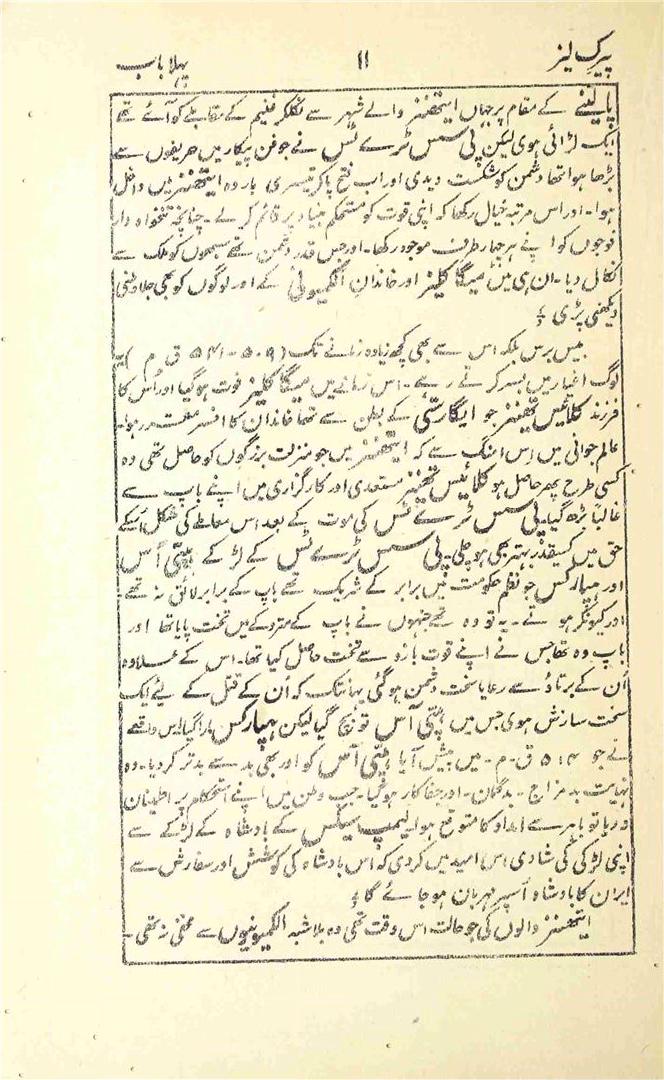 پیرک لیز
۱۱
پہلا باب
پالینے کے مقام پر جہاں ایتھنز والے شہر سے نکلکر غنیم کے مقابلے کو آئے تھے
ایک لڑائی ہوی لیکن پی سس ٹرے ٹس نے جو فن پیکار میں حریفوں سے
بڑھا ہوا تھا دشمن کو شکست دیدی اور اب فتح پا کر تیسری بار وہ ایتھنز میں داخل
ہوا۔ اور اس مرتبہ خیال رکھا کہ اپنی قوت کو مستحکم بنیاد پر قائم کرلے۔ چنانچہ تنخواہ دار
فوجوں کو اپنے ہر چہار طرف موجود رکھا۔ اور جس قدر دشمن تھے سبھوں کو ملک سے
نکال دیا۔ ان ہی میں میگا کلیز اور خاندان الکمیونی کے اور لوگوں کو بھی جلا وطنی
دیکھنی پڑی
بیس برس بلکہ اس سے بھی کچھ زیادہ زمانے تک (۵۰۹ - ۵۴۱ ق م) یہ
لوگ اغیار میں بسر کرتے رہے۔ اس زمانے میں میگا کلیز فوت ہوگیا اور اُس کا
فرزند کلائیس تھینز جو ایگارسٹی کے بطن سے تھا خاندان کا افسر مقرر ہوا۔
عالم جوانی میں اِس امنگ سے کہ ایتھنز میں جو منزلت بزرگوں کو حاصل تھی وہ
کسی طرح پھر حاصل ہو کلائیس تھینز مستعدی اور کارگزاری میں اپنے باپ سے
غالباً بڑھ گیا۔ پی سس ٹرے ٹس کی موت کے بعد اس معاملے کی شکل اسکے
حق میں کسیقدر بہتر بھی ہو چلی۔ پی سس ٹرے ٹس کے لڑکے ہپّی اَس
اور ہپارکس جو نظم حکومت میں برابر کے شریک تھے باپ کے برابر لائق نہ تھے۔
اور کیونکر ہوتے۔ یہ تو وہ تھے جنہوں نے باپ کے متروکے میں تخت پایا تھا اور
باپ وہ تھا جس نے اپنے قوت بازو سے تخت حاصل کیا تھا۔ اس کے علاوہ
اُن کے برتاؤ سے رعایا سخت دشمن ہوگئی یہانتک کہ اُن کے قتل کے لیے ایک
سخت سازش ہوی جس میں ہپّی اَس تو بچ گیا لیکن ہپارکس مارا گیا۔ اس واقعے
نے جو ۵۱۴ ق۔م۔ میں پیش آیا ہپّی اَس کو اور بھی بد سے بدتر کر دیا۔ وہ
نہایت بد مزاج۔ بدگمان۔ اور جفا کار ہوگیا۔ جب وطن میں اپنے استحکام پر اطمینان
نہ رہا تو باہر سے امداد کا متوقع ہوا۔ لیمپ سیکس کے بادشاہ کے لڑکے سے
اپنی لڑکی کی شادی اس امید میں کردی کہ اس بادشاہ کی کوشش اور سفارش سے
ایران کا بادشاہ اُسپر مہربان ہو جائے گا
ایتھنز والوں کی جو حالت اس وقت تھی وہ بلا شبہ الکمیونیوں سے مخفی نہ تھی۔